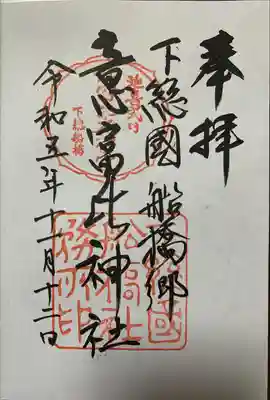 奉拝
下総國船橋郷
意富比神社
令和五年十一月十二日
下総船橋